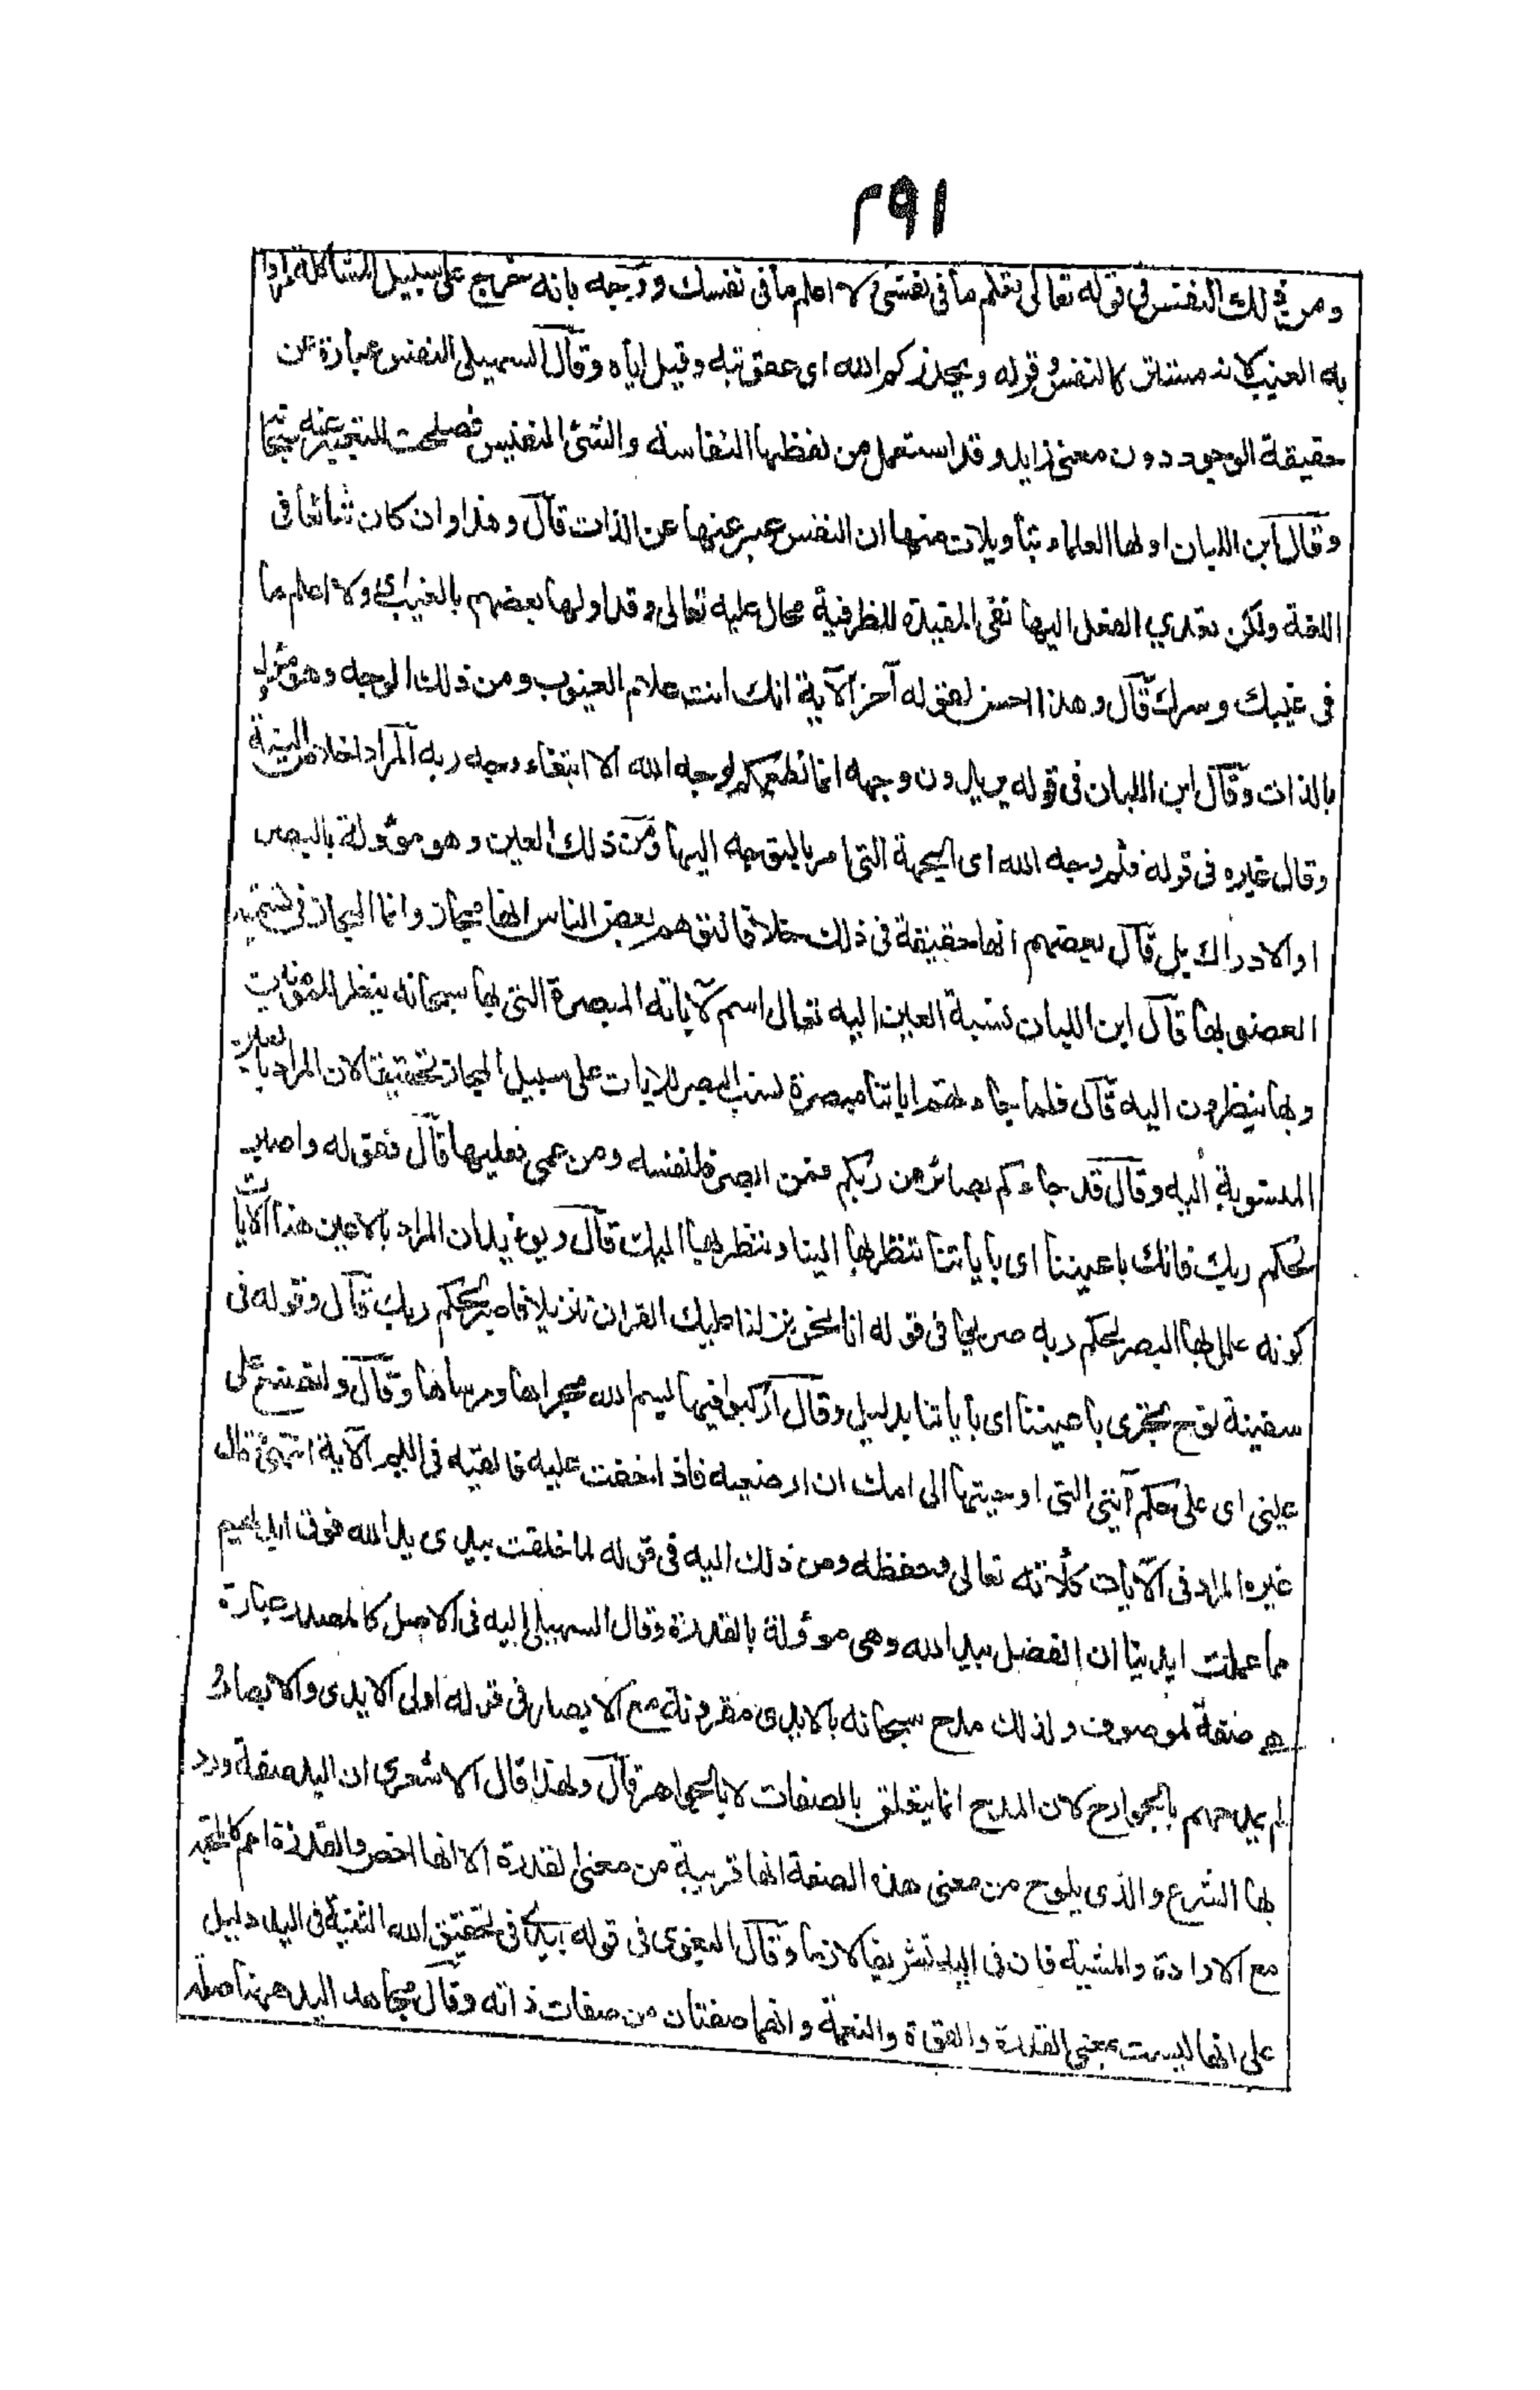 ٢٩١
ومن ذلك النفس في قوله تعالى تعلم ما في نفسي ولا اعلم ما في نفسك ووجه بانه خرج على سبيل المشاكلة مرادا
به الغيب لانه مستتر كالنفس وقوله ويحذركم الله اى عقوبته وقيل اياه وقال السهيلى النفس عبارة عن
حقيقة الوجود دون معنى زايد وقد استعمل من لفظها النفاسة والشئ النفيس فصلحت للتعبير عنه سبحانه
وقال ابن اللبان اولها العلماء بتأويلات منها ان النفس عبر عنها عن الذات قال وهذا وان كان شائعا فى
اللغة ولكن تعدي الفعل اليها بفى المقيدة للظرفية محال عليه تعالى وقد اولها بعضهم بالغيب اى ولا اعلم ما
فى غيبك وسرك قال وهذا احسن لقوله آخر الآية انك انت علام الغيوب ومن ذلك الوجه وهو مؤول
بالذات وقال ابن اللبان فى قوله يريدون وجهه انما نطعمكم لوجه الله الا ابتغاء وجه ربه المراد اخلاص النية
وقال غيره فى قوله فثم وجه الله اى الجهة التى امر بالتوجه اليها ومن ذلك العين وهو مؤولة بالبصر
او الادراك بل قال بعضهم انها حقيقة فى ذلك خلافا لتوهم بعض الناس انها مجاز وانما المجاز فى تسمية
العضو بها قال ابن اللبان نسبة العين اليه تعالى اسم لآياته المبصرة التى بها سبحانه ينظر للمؤمنين
وبها ينظرون اليه قال فلما جاءتهم اياتنا مبصرة نسب البصر للايات على سبيل المجاز تحقيقا لان المراد بالعين
المنسوبة اليه وقال قد جاءكم بصائر من ربكم فمن ابصر فلنفسه ومن عمى فعليها قال فقوله واصبر
لحكم ربك فانك باعيننا اى بآياتنا تنظر بها الينا وننظر بها اليك قال ويؤيد ان المراد بالاعين هنا الآيات
كونه علل بها الصبر لحكم ربه صريحا فى قوله انا نحن نزلنا عليك القران تنزيلا فاصبر لحكم ربك قال وقوله فى
سفينة نوح تجرى باعيننا اى بآياتنا بدليل وقال اركبوا فيها بسم الله مجراها ومرساها وقال ولتصنع على
عينى اى على حكم آيتى التى اوحيتها الى امك ان ارضعيه فاذا خفت عليه فالقيه فى اليم الآية انتهى وقال
غيره المراد فى الآيات كلأته تعالى وحفظه ومن ذلك اليد فى قوله لما خلقت بيدى يد الله فوق ايديهم
مما عملت ايدينا ان الفضل بيد الله وهى مؤولة بالقدرة وقال السهيلى اليد فى الاصل كالمصدر عبارة
عن صفة لموصوف ولذلك مدح سبحانه بالايدى مقرونة مع الابصار فى قوله اولى الايدى والابصار و
لم يمدحهم بالجوارح لان المدح انما يتعلق بالصفات لا بالجواهر قال ولهذا قال الاشعرى ان اليد صفة ورد
بها الشرع والذى يلوح من معنى هذه الصفة انها قريبة من معنى القدرة الا انها اخص والقدرة اعم كالمحبة
مع الارادة والمشية فان فى اليد تشريفا لازما وقال البغوى فى قوله بيدى فى تحقيق الله التثنية فى اليد دليل
على انها ليست بمعنى القدرة والقوة والنعمة وانهما صفتان من صفات ذاته وقال مجاهد اليد ههنا صلة